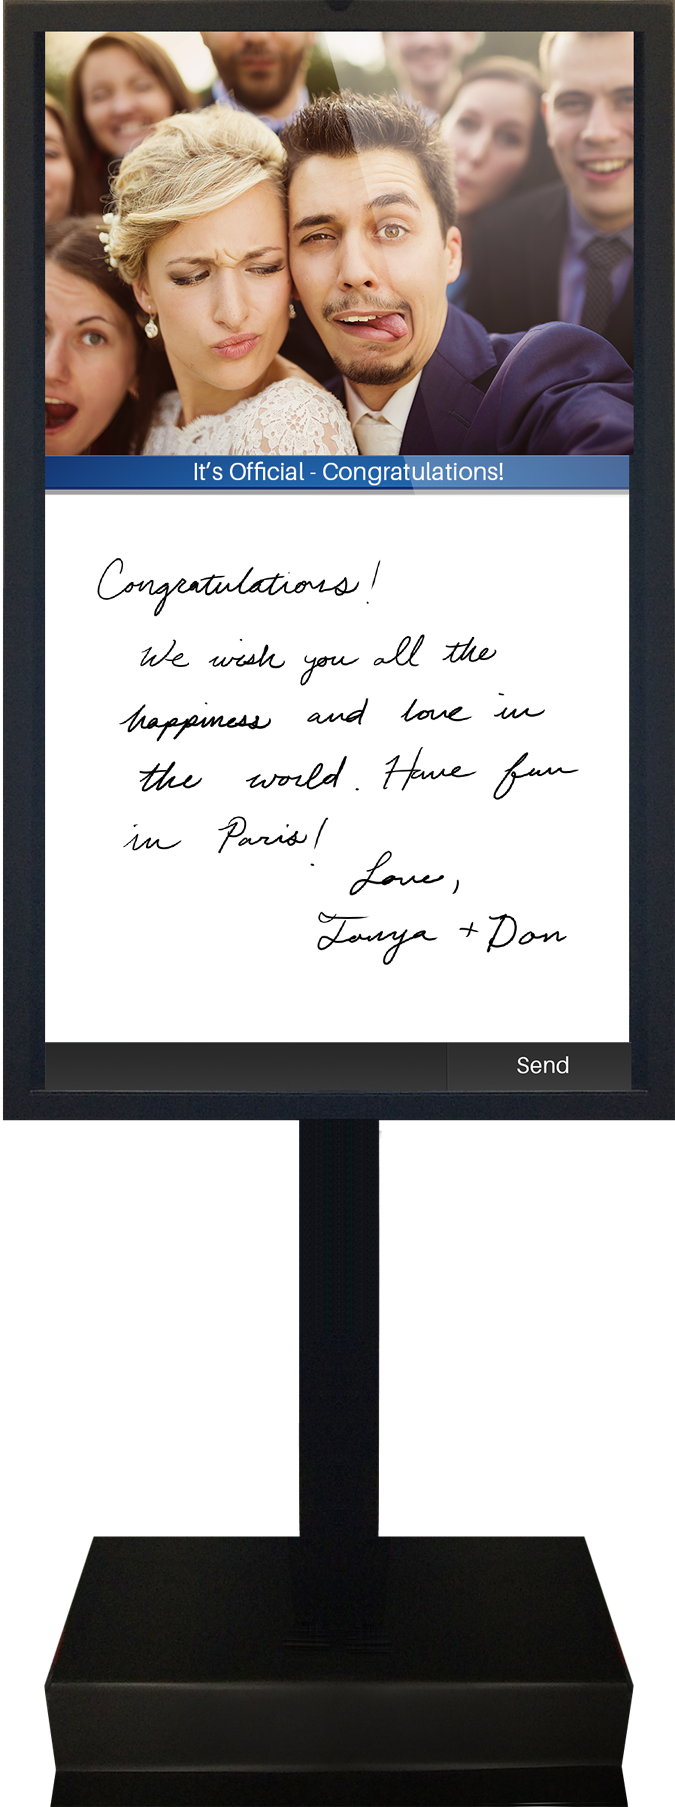 It's Official - Congratulations!
Congratulations!
We wish you all the
happiness and love in
the world. Have fun
in Paris!
Love,
Tonya + Don
Send